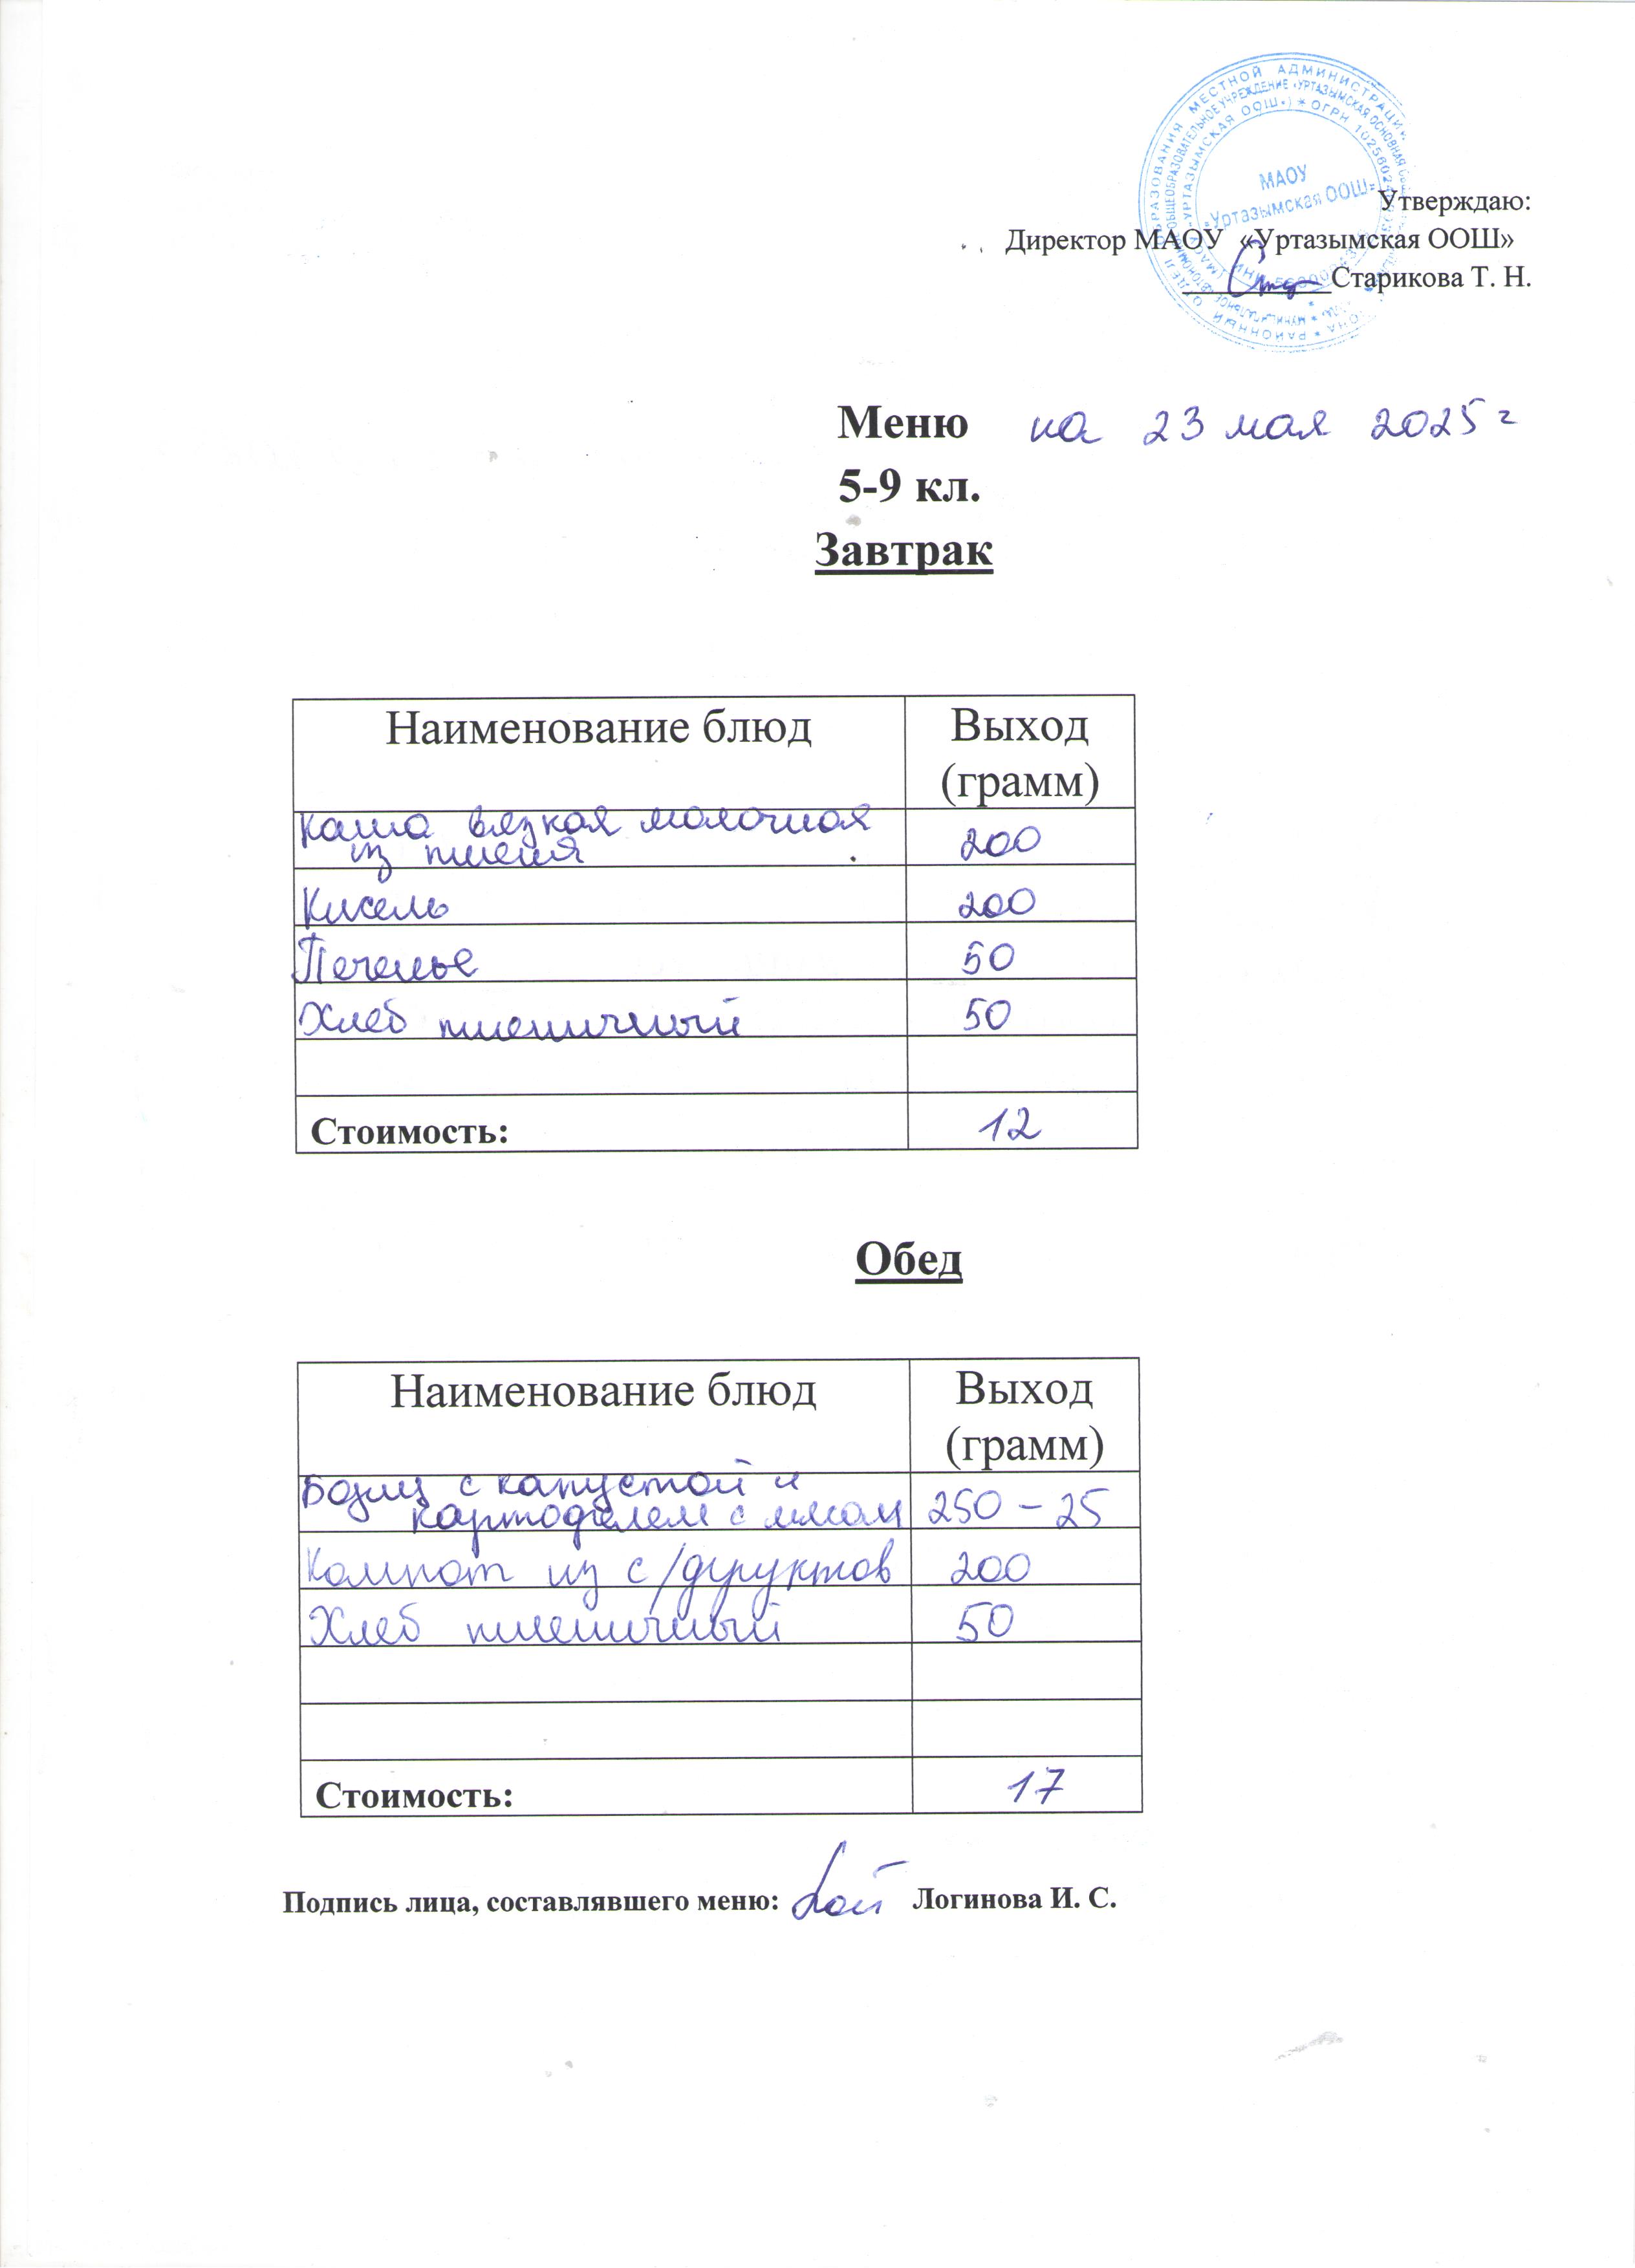 РАЙОННЫЙ ОТДЕЛ ОБРАЗОВАНИЯ МЕСТНОЙ АДМИНИСТРАЦИИ
ОБЩЕОБРАЗОВАТЕЛЬНОЕ УЧРЕЖДЕНИЕ «УРТАЗЫМСКАЯ ОСНОВНАЯ
(МАОУ «УРТАЗЫМСКАЯ ООШ») * ОГРН
МАОУ
«Уртазымская ООШ»
Утверждаю:
Директор МАОУ «Уртазымская ООШ»
Старикова Т. Н.
Меню на 23 мая 2025 г
5-9 кл.
Завтрак
Наименование блюд Выход
(грамм)
Каша вязкая молочная
из пшена 200
Кисель 200
Печенье 50
Хлеб пшеничный 50
Стоимость: 12
Обед
Наименование блюд Выход
(грамм)
с капустой и
картофелем с мясом 250 - 25
Компот из с/фруктов 200
Хлеб пшеничный 50
Стоимость: 17
Подпись лица, составлявшего меню: Логинова И. С.